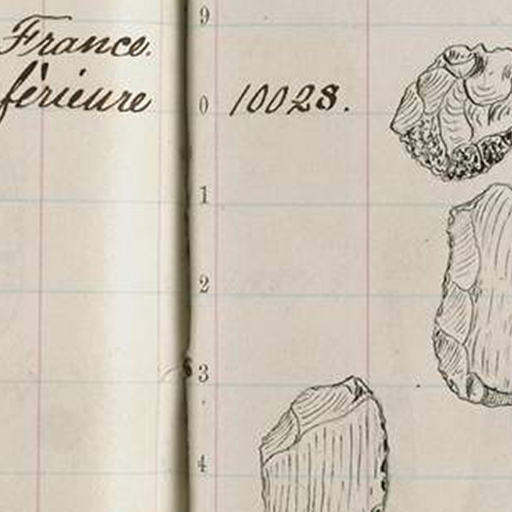 France.
férieure
9
0 10028.
1
2
3
4